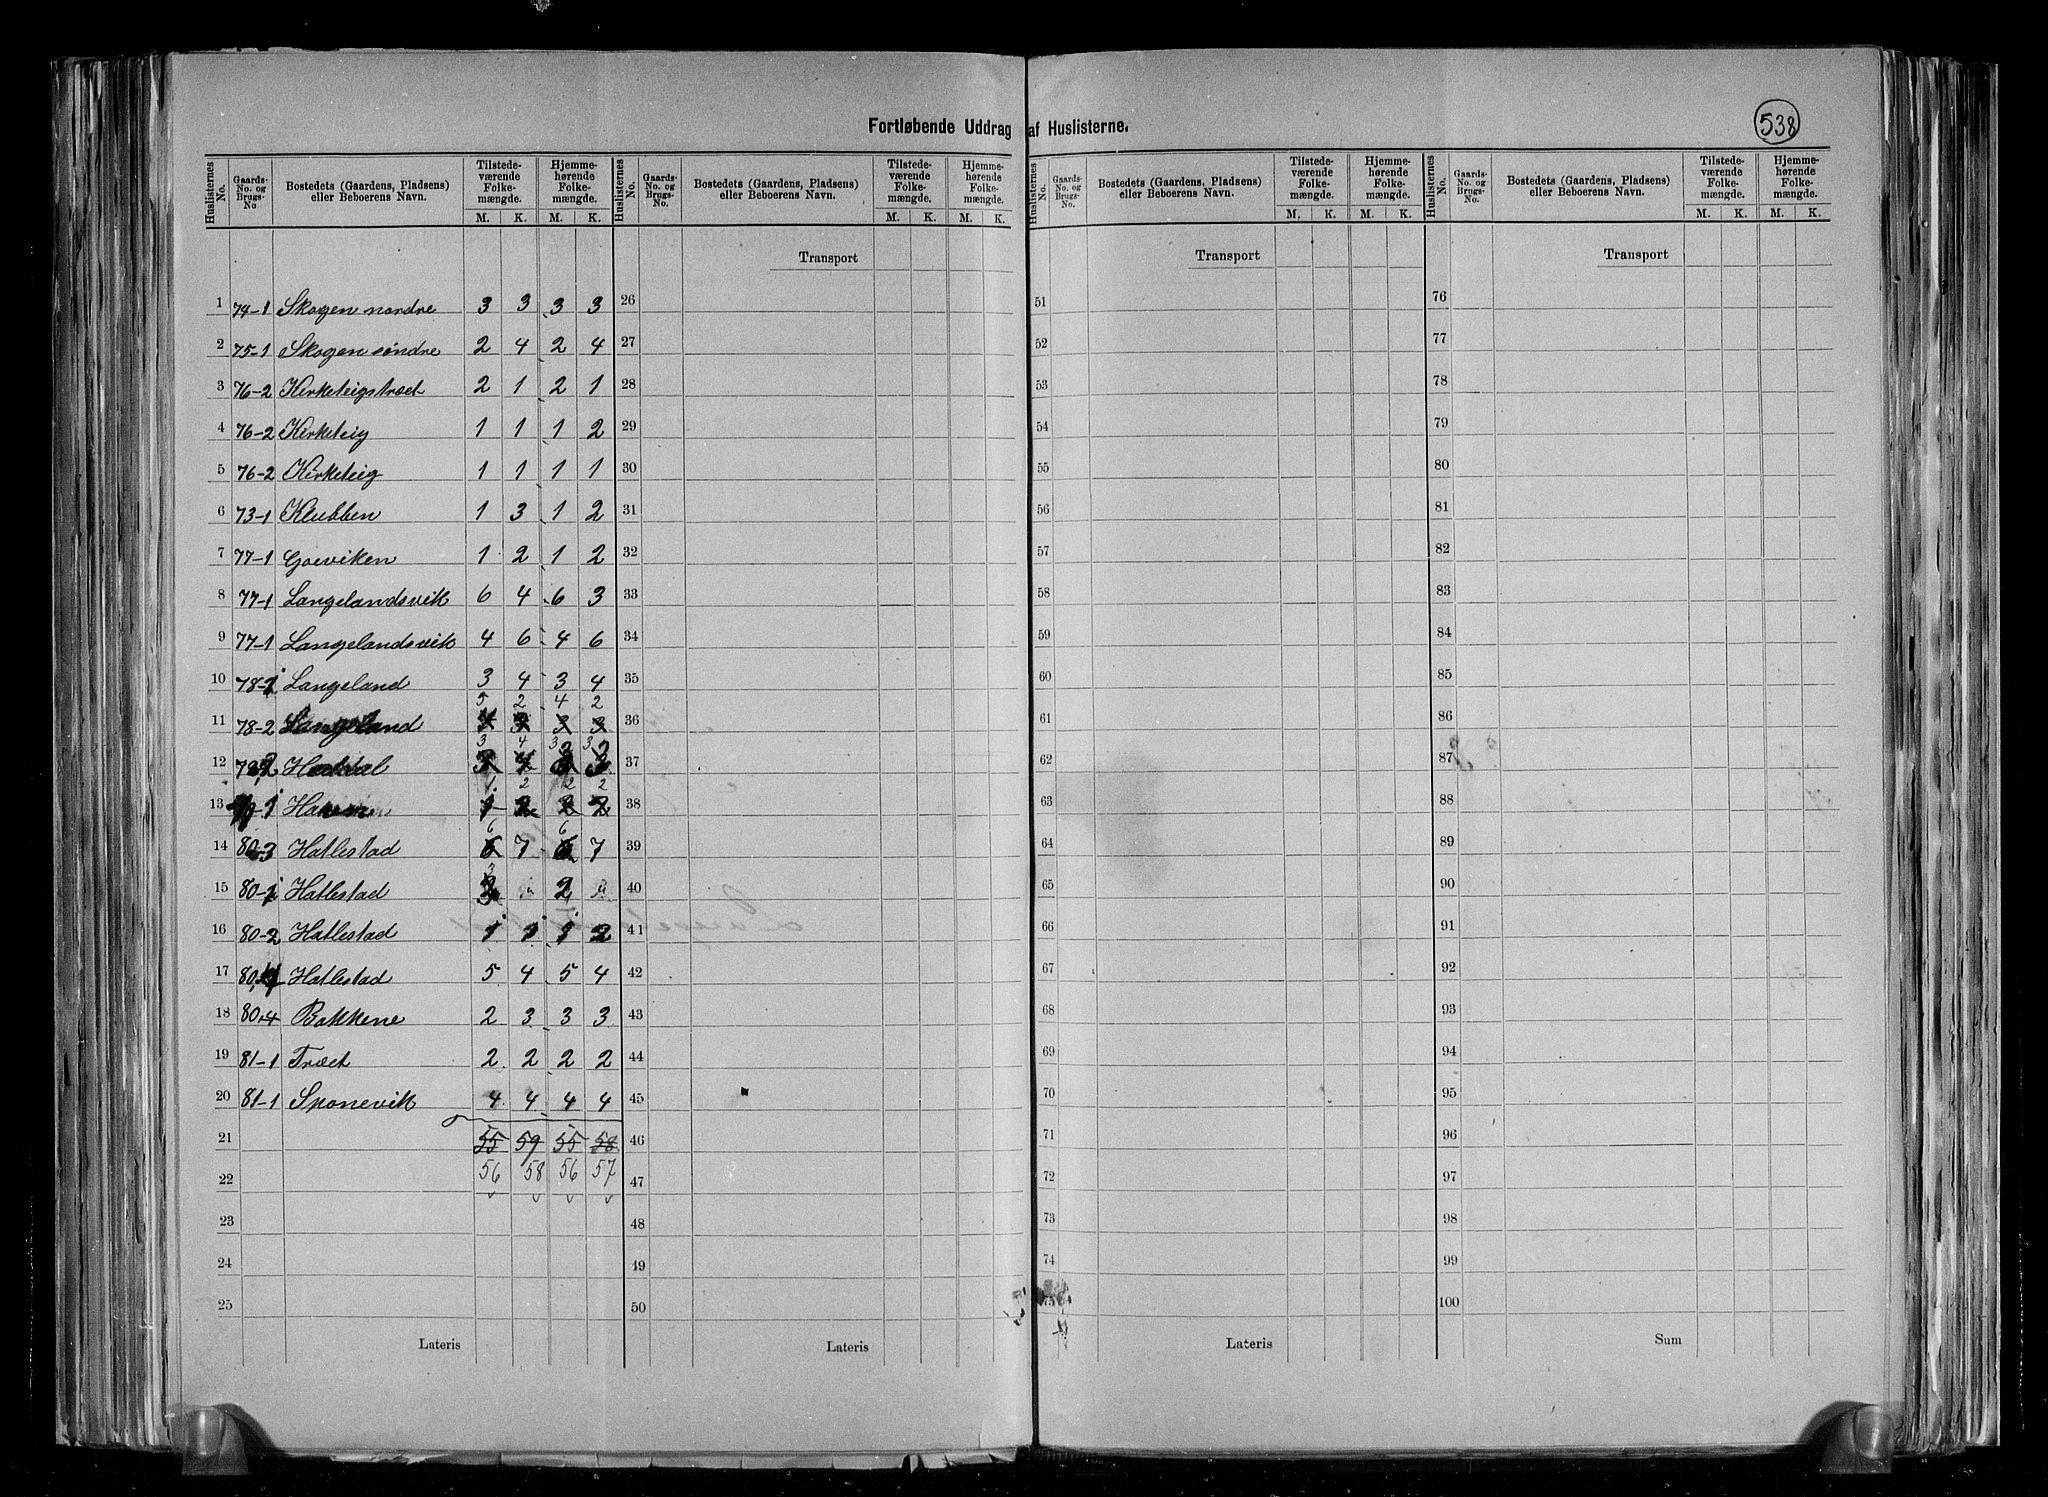 Fortløbende Uddrag af Huslisterne.
538
Huslisternes No. Gaards-No. og Brugs-No Bostedets (Gaardens, Pladsens) eller Beboerens Navn. Tilstedeværende Folkemængde. M. K. Hjemmehørende Folkemængde. M. K.
Huslisternes No. Gaards-No. og Brugs-No. Bostedets (Gaardens, Pladsens) eller Beboerens Navn. Tilstedeværende Folkemængde. M. K. Hjemmehørende Folkemængde. M. K.
Huslisternes No. Gaards-No. og Brugs-No. Bostedets (Gaardens, Pladsens) eller Beboerens Navn. Tilstedeværende Folkemængde. M. K. Hjemmehørende Folkemængde. M. K.
Huslisternes No. Gaards-No. og Brugs-No. Bostedets (Gaardens, Pladsens) eller Beboerens Navn. Tilstedeværende Folkemængde. M. K. Hjemmehørende Folkemængde. M. K.
Transport Transport Transport
1 74-1 Skogen nordre 3 3 3 3 26 51 76
2 75-1 Skogen søndre 2 4 2 4 27 52 77
3 76-2 Kirketeigstræet 2 1 2 1 28 53 78
4 76-2 Kirketeig 1 1 1 2 29 54 79
5 76-2 Kirketeig 1 1 1 1 30 55 80
6 73-1 Klubben 1 3 1 2 31 56 81
7 77-1 Goeviken 1 2 1 2 32 57 82
8 77-1 Langelandsvik 6 4 6 3 33 58 83
9 77-1 Langelandsvik 4 6 4 6 34 59 84
10 78-1 Langeland 3 4 3 4 35 60 85
5 2 4 2
11 78-2 Langeland 36 61 86
3 4 3 3
12 37 62 87
1 2 2 2
13 38 63 88
6 6
14 80-3 Hatlestad 7 7 39 64 89
3
15 80-1 Hatlestad 2 40 65 90
16 80-2 Hatlestad 1 1 1 2 41 66 91
17 Hatlestad 5 4 5 4 42 67 92
18 80-4 Bakkene 2 3 3 3 43 68 93
19 81-1 Træet 2 2 2 2 44 69 94
20 81-1 Sponevik 4 4 4 4 45 70 95
21 55 59 55 58 46 71 96
22 56 58 56 57 47 72 97
23 48 73 98
24 49 74 99
25 50 75 100
Lateris Lateris Lateris Sum